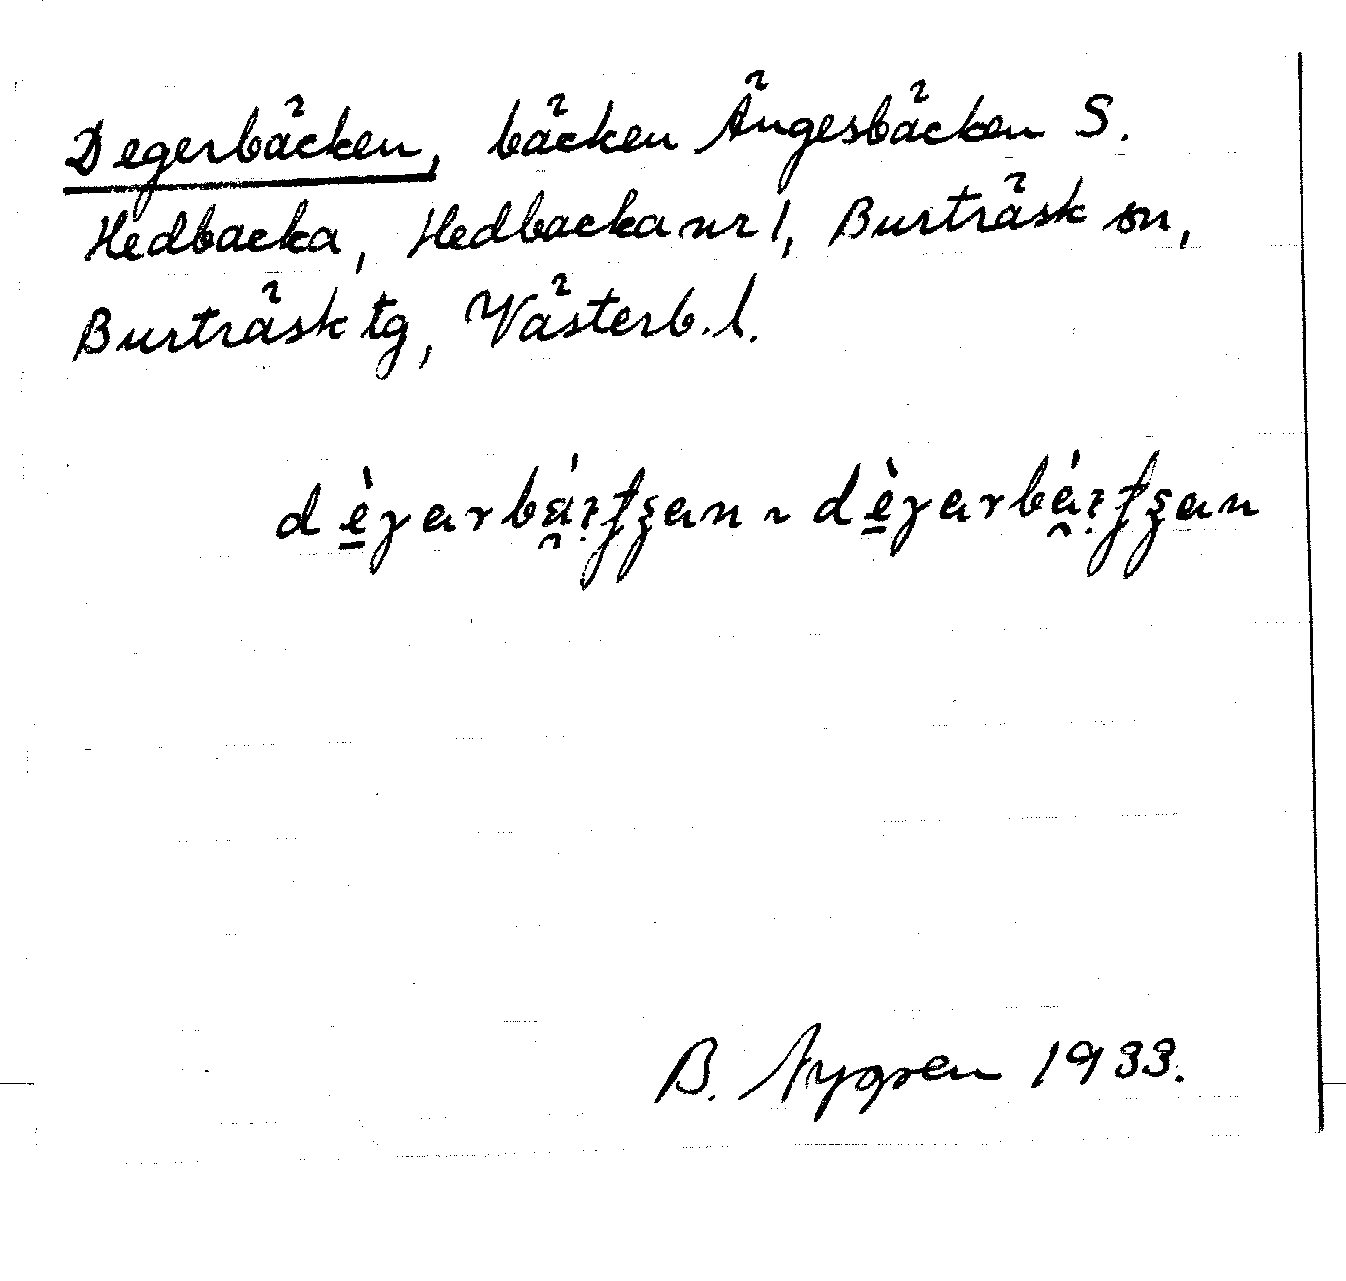 Degerbäcken, bäcken Ängesbäcken S.
Hedbacka, Hedbacka nr 1, Burträsk sn,
Burträsk tg, Västerb. l.
B. Nygren 1933.